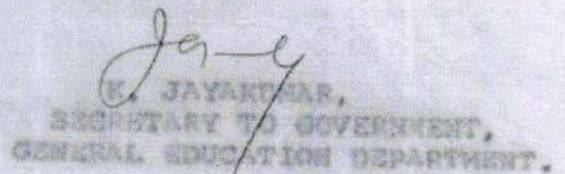 K. JAYAKUMAR,
SECRETARY TO GOVERNMENT,
GENERAL EDUCATION DEPARTMENT.